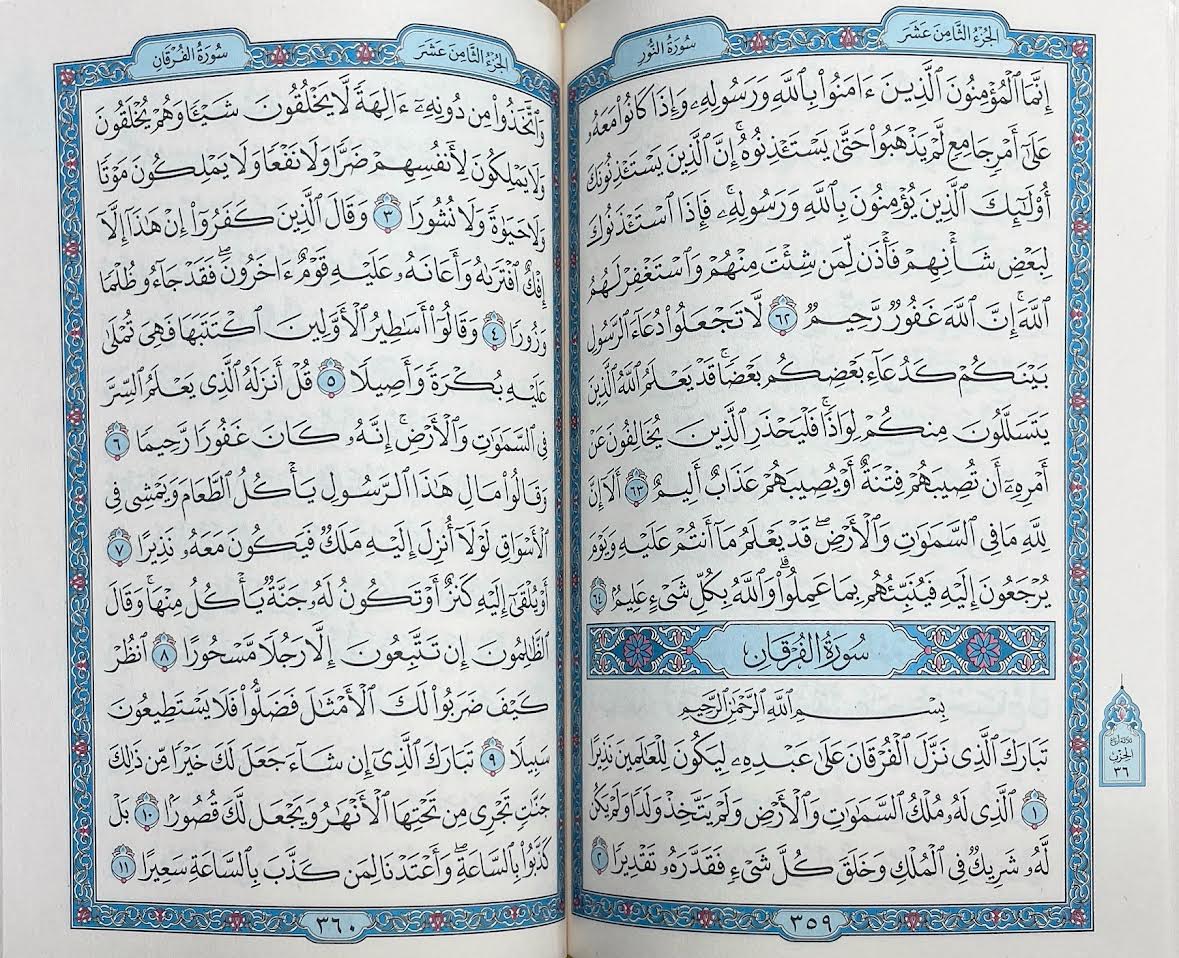 الجزء الثامن عشر
سورة النور
إِنَّمَا ٱلْمُؤْمِنُونَ ٱلَّذِينَ ءَامَنُوا۟ بِٱللَّهِ وَرَسُولِهِۦ وَإِذَا كَانُوا۟ مَعَهُۥ
عَلَىٰٓ أَمْرٍ جَامِعٍ لَّمْ يَذْهَبُوا۟ حَتَّىٰ يَسْتَـْٔذِنُوهُ ۚ إِنَّ ٱلَّذِينَ يَسْتَـْٔذِنُونَكَ
أُو۟لَـٰٓئِكَ ٱلَّذِينَ يُؤْمِنُونَ بِٱللَّهِ وَرَسُولِهِۦ ۚ فَإِذَا ٱسْتَـْٔذَنُوكَ
لِبَعْضِ شَأْنِهِمْ فَأْذَن لِّمَن شِئْتَ مِنْهُمْ وَٱسْتَغْفِرْ لَهُمُ
ٱللَّهَ ۚ إِنَّ ٱللَّهَ غَفُورٌ رَّحِيمٌ ٦٢ لَّا تَجْعَلُوا۟ دُعَآءَ ٱلرَّسُولِ
بَيْنَكُمْ كَدُعَآءِ بَعْضِكُم بَعْضًا ۚ قَدْ يَعْلَمُ ٱللَّهُ ٱلَّذِينَ
يَتَسَلَّلُونَ مِنكُمْ لِوَاذًا ۚ فَلْيَحْذَرِ ٱلَّذِينَ يُخَالِفُونَ عَنْ
أَمْرِهِۦٓ أَن تُصِيبَهُمْ فِتْنَةٌ أَوْ يُصِيبَهُمْ عَذَابٌ أَلِيمٌ ٦٣ أَلَآ إِنَّ
لِلَّهِ مَا فِى ٱلسَّمَـٰوَٰتِ وَٱلْأَرْضِ ۖ قَدْ يَعْلَمُ مَآ أَنتُمْ عَلَيْهِ وَيَوْمَ
يُرْجَعُونَ إِلَيْهِ فَيُنَبِّئُهُم بِمَا عَمِلُوا۟ ۗ وَٱللَّهُ بِكُلِّ شَىْءٍ عَلِيمٌۢ ٦٤
سُورَةُ الفُرْقَانِ
بِسْمِ ٱللَّهِ ٱلرَّحْمَـٰنِ ٱلرَّحِيمِ
تَبَارَكَ ٱلَّذِى نَزَّلَ ٱلْفُرْقَانَ عَلَىٰ عَبْدِهِۦ لِيَكُونَ لِلْعَـٰلَمِينَ نَذِيرًا
١ ٱلَّذِى لَهُۥ مُلْكُ ٱلسَّمَـٰوَٰتِ وَٱلْأَرْضِ وَلَمْ يَتَّخِذْ وَلَدًا وَلَمْ يَكُن
لَّهُۥ شَرِيكٌ فِى ٱلْمُلْكِ وَخَلَقَ كُلَّ شَىْءٍ فَقَدَّرَهُۥ تَقْدِيرًا ٢
٣٥٩
الحزب
٣٦
الجزء الثامن عشر
سورة الفرقان
وَٱتَّخَذُوا۟ مِن دُونِهِۦٓ ءَالِهَةً لَّا يَخْلُقُونَ شَيْـًٔا وَهُمْ يُخْلَقُونَ
وَلَا يَمْلِكُونَ لِأَنفُسِهِمْ ضَرًّا وَلَا نَفْعًا وَلَا يَمْلِكُونَ مَوْتًا
وَلَا حَيَوٰةً وَلَا نُشُورًا ٣ وَقَالَ ٱلَّذِينَ كَفَرُوٓا۟ إِنْ هَـٰذَآ إِلَّآ
إِفْكٌ ٱفْتَرَىٰهُ وَأَعَانَهُۥ عَلَيْهِ قَوْمٌ ءَاخَرُونَ ۖ فَقَدْ جَآءُو ظُلْمًا
وَزُورًا ٤ وَقَالُوٓا۟ أَسَـٰطِيرُ ٱلْأَوَّلِينَ ٱكْتَتَبَهَا فَهِىَ تُمْلَىٰ
عَلَيْهِ بُكْرَةً وَأَصِيلًا ٥ قُلْ أَنزَلَهُ ٱلَّذِى يَعْلَمُ ٱلسِّرَّ
فِى ٱلسَّمَـٰوَٰتِ وَٱلْأَرْضِ ۚ إِنَّهُۥ كَانَ غَفُورًا رَّحِيمًا ٦
وَقَالُوا۟ مَالِ هَـٰذَا ٱلرَّسُولِ يَأْكُلُ ٱلطَّعَامَ وَيَمْشِى فِى
ٱلْأَسْوَاقِ ۙ لَوْلَآ أُنزِلَ إِلَيْهِ مَلَكٌ فَيَكُونَ مَعَهُۥ نَذِيرًا ٧
أَوْ يُلْقَىٰٓ إِلَيْهِ كَنزٌ أَوْ تَكُونُ لَهُۥ جَنَّةٌ يَأْكُلُ مِنْهَا ۚ وَقَالَ
ٱلظَّـٰلِمُونَ إِن تَتَّبِعُونَ إِلَّا رَجُلًا مَّسْحُورًا ٨ ٱنظُرْ
كَيْفَ ضَرَبُوا۟ لَكَ ٱلْأَمْثَـٰلَ فَضَلُّوا۟ فَلَا يَسْتَطِيعُونَ
سَبِيلًا ٩ تَبَارَكَ ٱلَّذِىٓ إِن شَآءَ جَعَلَ لَكَ خَيْرًا مِّن ذَٰلِكَ
جَنَّـٰتٍ تَجْرِى مِن تَحْتِهَا ٱلْأَنْهَـٰرُ وَيَجْعَل لَّكَ قُصُورًۢا ١٠ بَلْ
كَذَّبُوا۟ بِٱلسَّاعَةِ ۖ وَأَعْتَدْنَا لِمَن كَذَّبَ بِٱلسَّاعَةِ سَعِيرًا ١١
٣٦٠